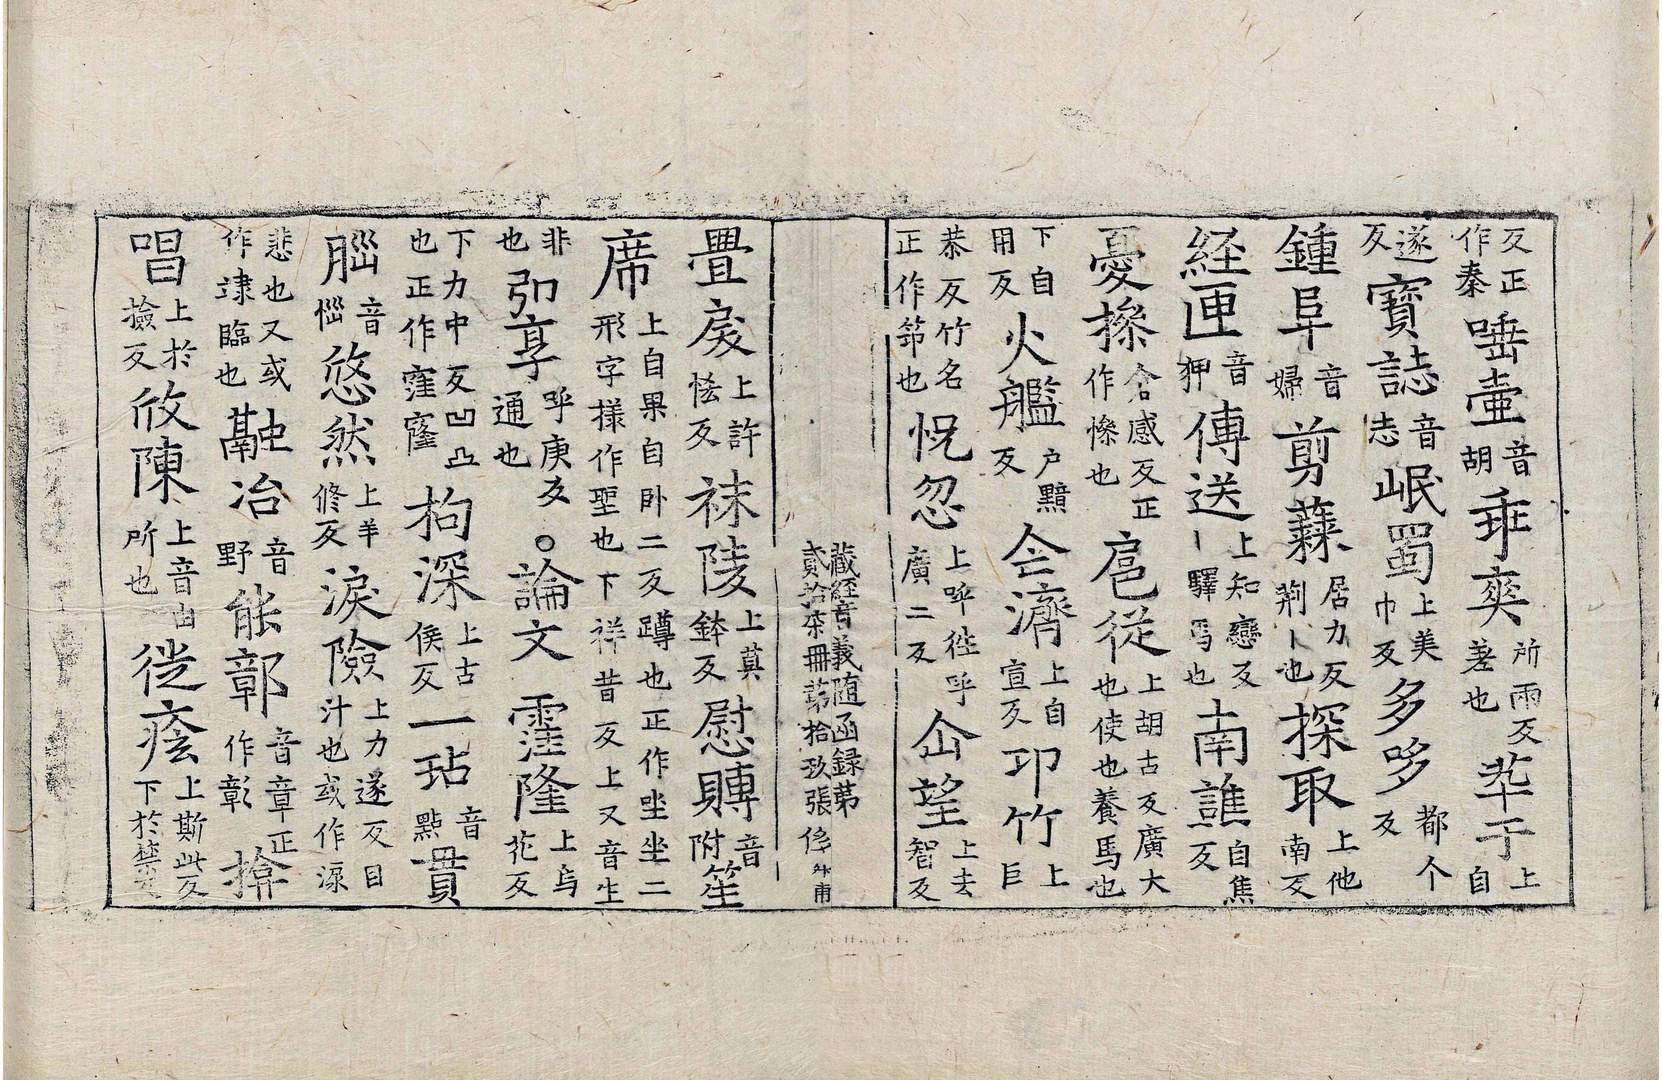 反正作秦唾壷音胡乖爽所兩反差也茟于上自
遂反寶誌音志岷蜀上美巾反多哆都个反
鍾阜音婦剪蕀居力反荊丨也探取上他南反
経匣音狎傳送上知戀反丨驛馬也南譙自焦反
憂摻仓感反正作慘也扈従上胡古反廣大也使也養馬也
下自用反火艦戶黯反仝濟上自宣反卭竹上巨
恭反竹名正作筇也怳忽上呼往呼廣二反企望上去智反
藏経音義随函録苐貳拾柒冊苐拾玖張
疊扆上許怯反袜陵上莫鉢反慰賻音附笙
席上自果自卧二反蹲也正作坐坐二形字樣作聖也下祥昔反上又音生
非也卯享呼庚反通也○論文霪隆上烏花反
下力中反凹凸也正作窪窿拘深上古侯反一玷音點貫
腦音惱悠然上羊修反淚險上力遂反目汁也或作淚
悲也又或作隷臨也融冶音野能鄣音章正作彰揜
唱上於撿反攸陳上音由所也徙瘞上斯此反下於禁反